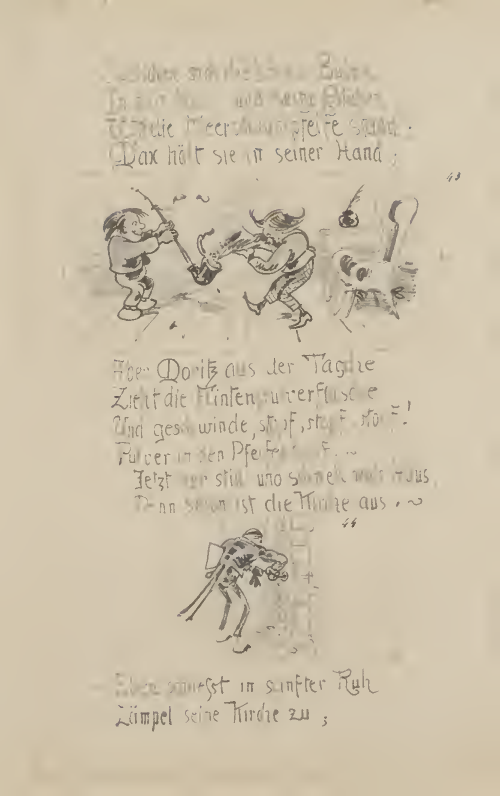 Buben
In sein Haus und seine Stuben
die Meerschaumpfeife stand.
Max hält sie in seiner Hand;
43
Aber Moritz aus der Tasche
Zieht die Flintenpulverflasche
Und geschwinde, stopf, stopf, stopf!
Pulver in den Pfeifenkopf.
Jetzt nur still und schnell nach Haus,
Denn schon ist die Kirche aus.
44
Eben schliesst in sanfter Ruh
Lämpel seine Kirche zu;